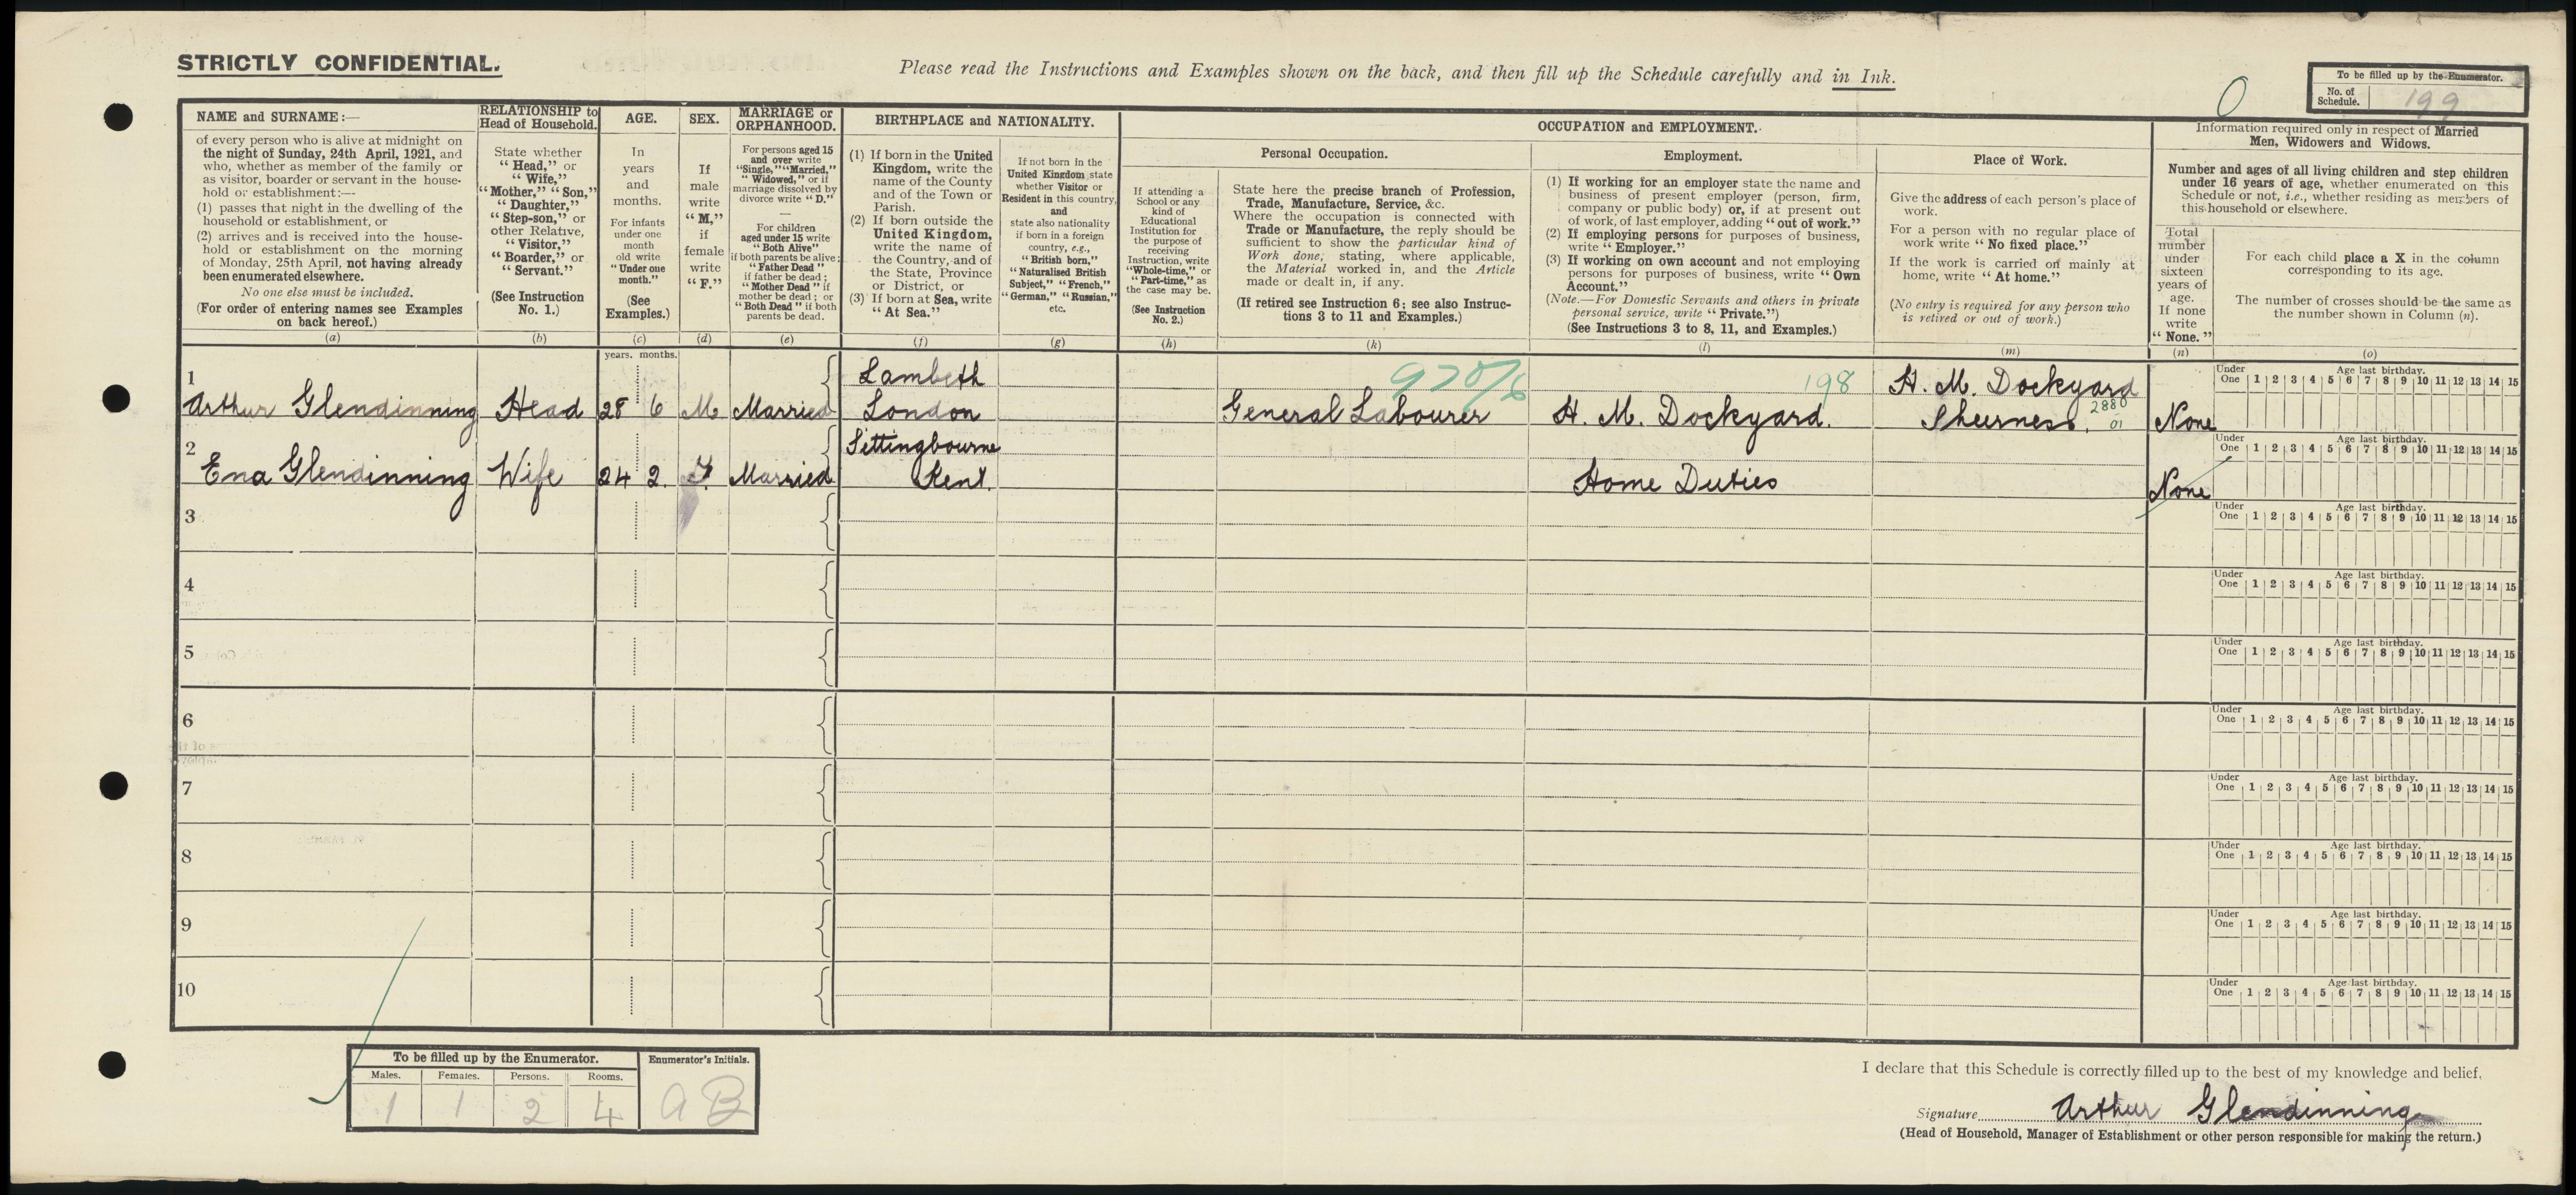 STRICTLY CONFIDENTIAL.
Please read the Instructions and Examples shown on the back, and then fill up the Schedule carefully and in Ink.
To be filled up by the Enumerator.
No. of Schedule.
199
0
NAME and SURNAME:—
of every person who is alive at midnight on
the night of Sunday, 24th April, 1921, and
who, whether as member of the family or
as visitor, boarder or servant in the house-
hold or establishment:—
(1) passes that night in the dwelling of the
household or establishment, or
(2) arrives and is received into the house-
hold or establishment on the morning
of Monday, 25th April, not having already
been enumerated elsewhere.
No one else must be included.
(For order of entering names see Examples
on back hereof.)
(a)
RELATIONSHIP to
Head of Household.
State whether
"Head," or
"Wife,"
"Mother," "Son,"
"Daughter,"
"Step-son," or
other Relative,
"Visitor,"
"Boarder," or
"Servant."
(See Instruction
No. 1.)
(b)
AGE.
In
years
and
months.
For infants
under one
month
old write
"Under one
month."
(See
Examples.)
(c)
SEX.
If
male
write
"M,"
if
female
write
"F."
(d)
MARRIAGE or
ORPHANHOOD.
For persons aged 15
and over write
"Single," "Married,"
"Widowed," or if
marriage dissolved by
divorce write "D."
—
For children
aged under 15 write
"Both Alive"
if both parents be alive;
"Father Dead"
if father be dead;
"Mother Dead" if
mother be dead; or
"Both Dead" if both
parents be dead.
(e)
BIRTHPLACE and NATIONALITY.
(1) If born in the United
Kingdom, write the
name of the County
and of the Town or
Parish.
(2) If born outside the
United Kingdom,
write the name of
the Country, and of
the State, Province
or District, or
(3) If born at Sea, write
"At Sea."
(f)
If not born in the
United Kingdom state
whether Visitor or
Resident in this country,
and
state also nationality
if born in a foreign
country, e.g.,
"British born,"
"Naturalised British
Subject," "French,"
"German," "Russian,"
etc.
(g)
OCCUPATION and EMPLOYMENT.
If attending a
School or any
kind of
Educational
Institution for
the purpose of
receiving
Instruction, write
"Whole-time," or
"Part-time," as
the case may be.
(See Instruction
No. 2.)
(h)
Personal Occupation.
State here the precise branch of Profession,
Trade, Manufacture, Service, &c.
Where the occupation is connected with
Trade or Manufacture, the reply should be
sufficient to show the particular kind of
Work done, stating, where applicable,
the Material worked in, and the Article
made or dealt in, if any.
(If retired see Instruction 6; see also Instruc-
tions 3 to 11 and Examples.)
(k)
Employment.
(1) If working for an employer state the name and
business of present employer (person, firm,
company or public body) or, if at present out
of work, of last employer, adding "out of work."
(2) If employing persons for purposes of business,
write "Employer."
(3) If working on own account and not employing
persons for purposes of business, write "Own
Account."
(Note.—For Domestic Servants and others in private
personal service, write "Private.")
(See Instructions 3 to 8, 11, and Examples.)
(l)
Place of Work.
Give the address of each person's place of
work.
For a person with no regular place of
work write "No fixed place."
If the work is carried on mainly at
home, write "At home."
(No entry is required for any person who
is retired or out of work.)
(m)
Information required only in respect of Married
Men, Widowers and Widows.
Number and ages of all living children and step children
under 16 years of age, whether enumerated on this
Schedule or not, i.e., whether residing as members of
this household or elsewhere.
Total
number
under
sixteen
years of
age.
If none
write
"None."
(n)
For each child place a X in the column
corresponding to its age.
The number of crosses should be the same as
the number shown in Column (n).
(o)
years. months.
1 Arthur Glendinning Head 28 6 M Married Lambeth London General Labourer H. M. Dockyard. 198 H. M. Dockyard Sheerness. 2880 01 None
Under One Age last birthday. 1 2 3 4 5 6 7 8 9 10 11 12 13 14 15
2 Ena Glendinning Wife 24 2. F. Married Sittingbourne Kent. Home Duties None
Under One Age last birthday. 1 2 3 4 5 6 7 8 9 10 11 12 13 14 15
3
Under One Age last birthday. 1 2 3 4 5 6 7 8 9 10 11 12 13 14 15
4
Under One Age last birthday. 1 2 3 4 5 6 7 8 9 10 11 12 13 14 15
5
Under One Age last birthday. 1 2 3 4 5 6 7 8 9 10 11 12 13 14 15
6
Under One Age last birthday. 1 2 3 4 5 6 7 8 9 10 11 12 13 14 15
7
Under One Age last birthday. 1 2 3 4 5 6 7 8 9 10 11 12 13 14 15
8
Under One Age last birthday. 1 2 3 4 5 6 7 8 9 10 11 12 13 14 15
9
Under One Age last birthday. 1 2 3 4 5 6 7 8 9 10 11 12 13 14 15
10
Under One Age last birthday. 1 2 3 4 5 6 7 8 9 10 11 12 13 14 15
To be filled up by the Enumerator.
Enumerator's Initials.
Males. Females. Persons. Rooms.
1 1 2 4 AB
I declare that this Schedule is correctly filled up to the best of my knowledge and belief.
Signature Arthur Glendinning
(Head of Household, Manager of Establishment or other person responsible for making the return.)